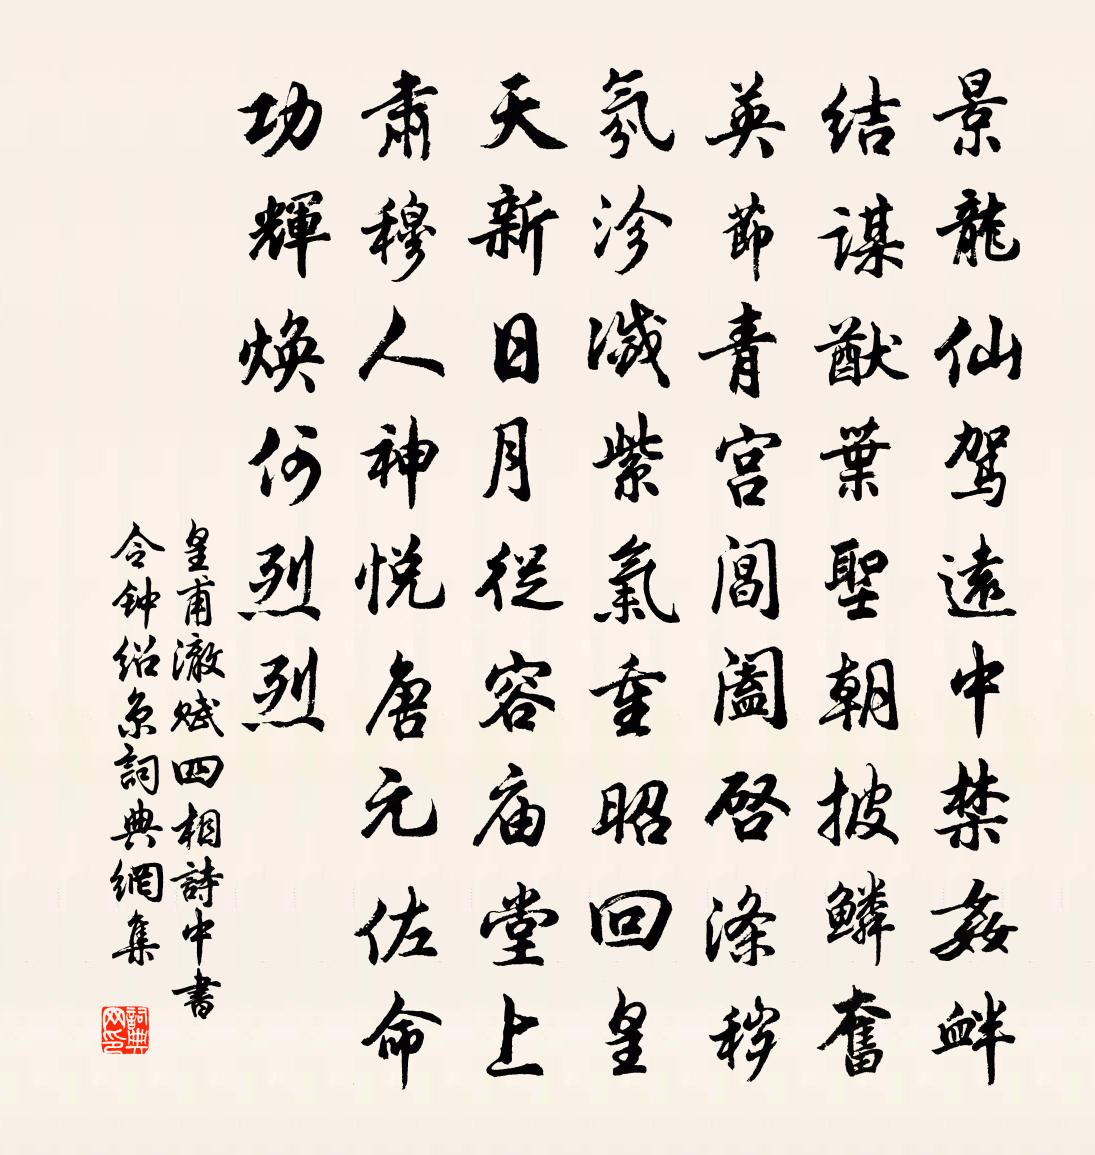 景龍仙駕遠中禁姦衅
结谋猷葉聖朝披鱗奮
英節青宫閶闔啓滌穢
氛沴滅紫氣重昭回皇
天新日月從容庙堂上
肅穆人神悦唐元佐命
功輝焕何烈烈
皇甫澈赋四相詩中書
令钟绍京詞典網集
詞典网印